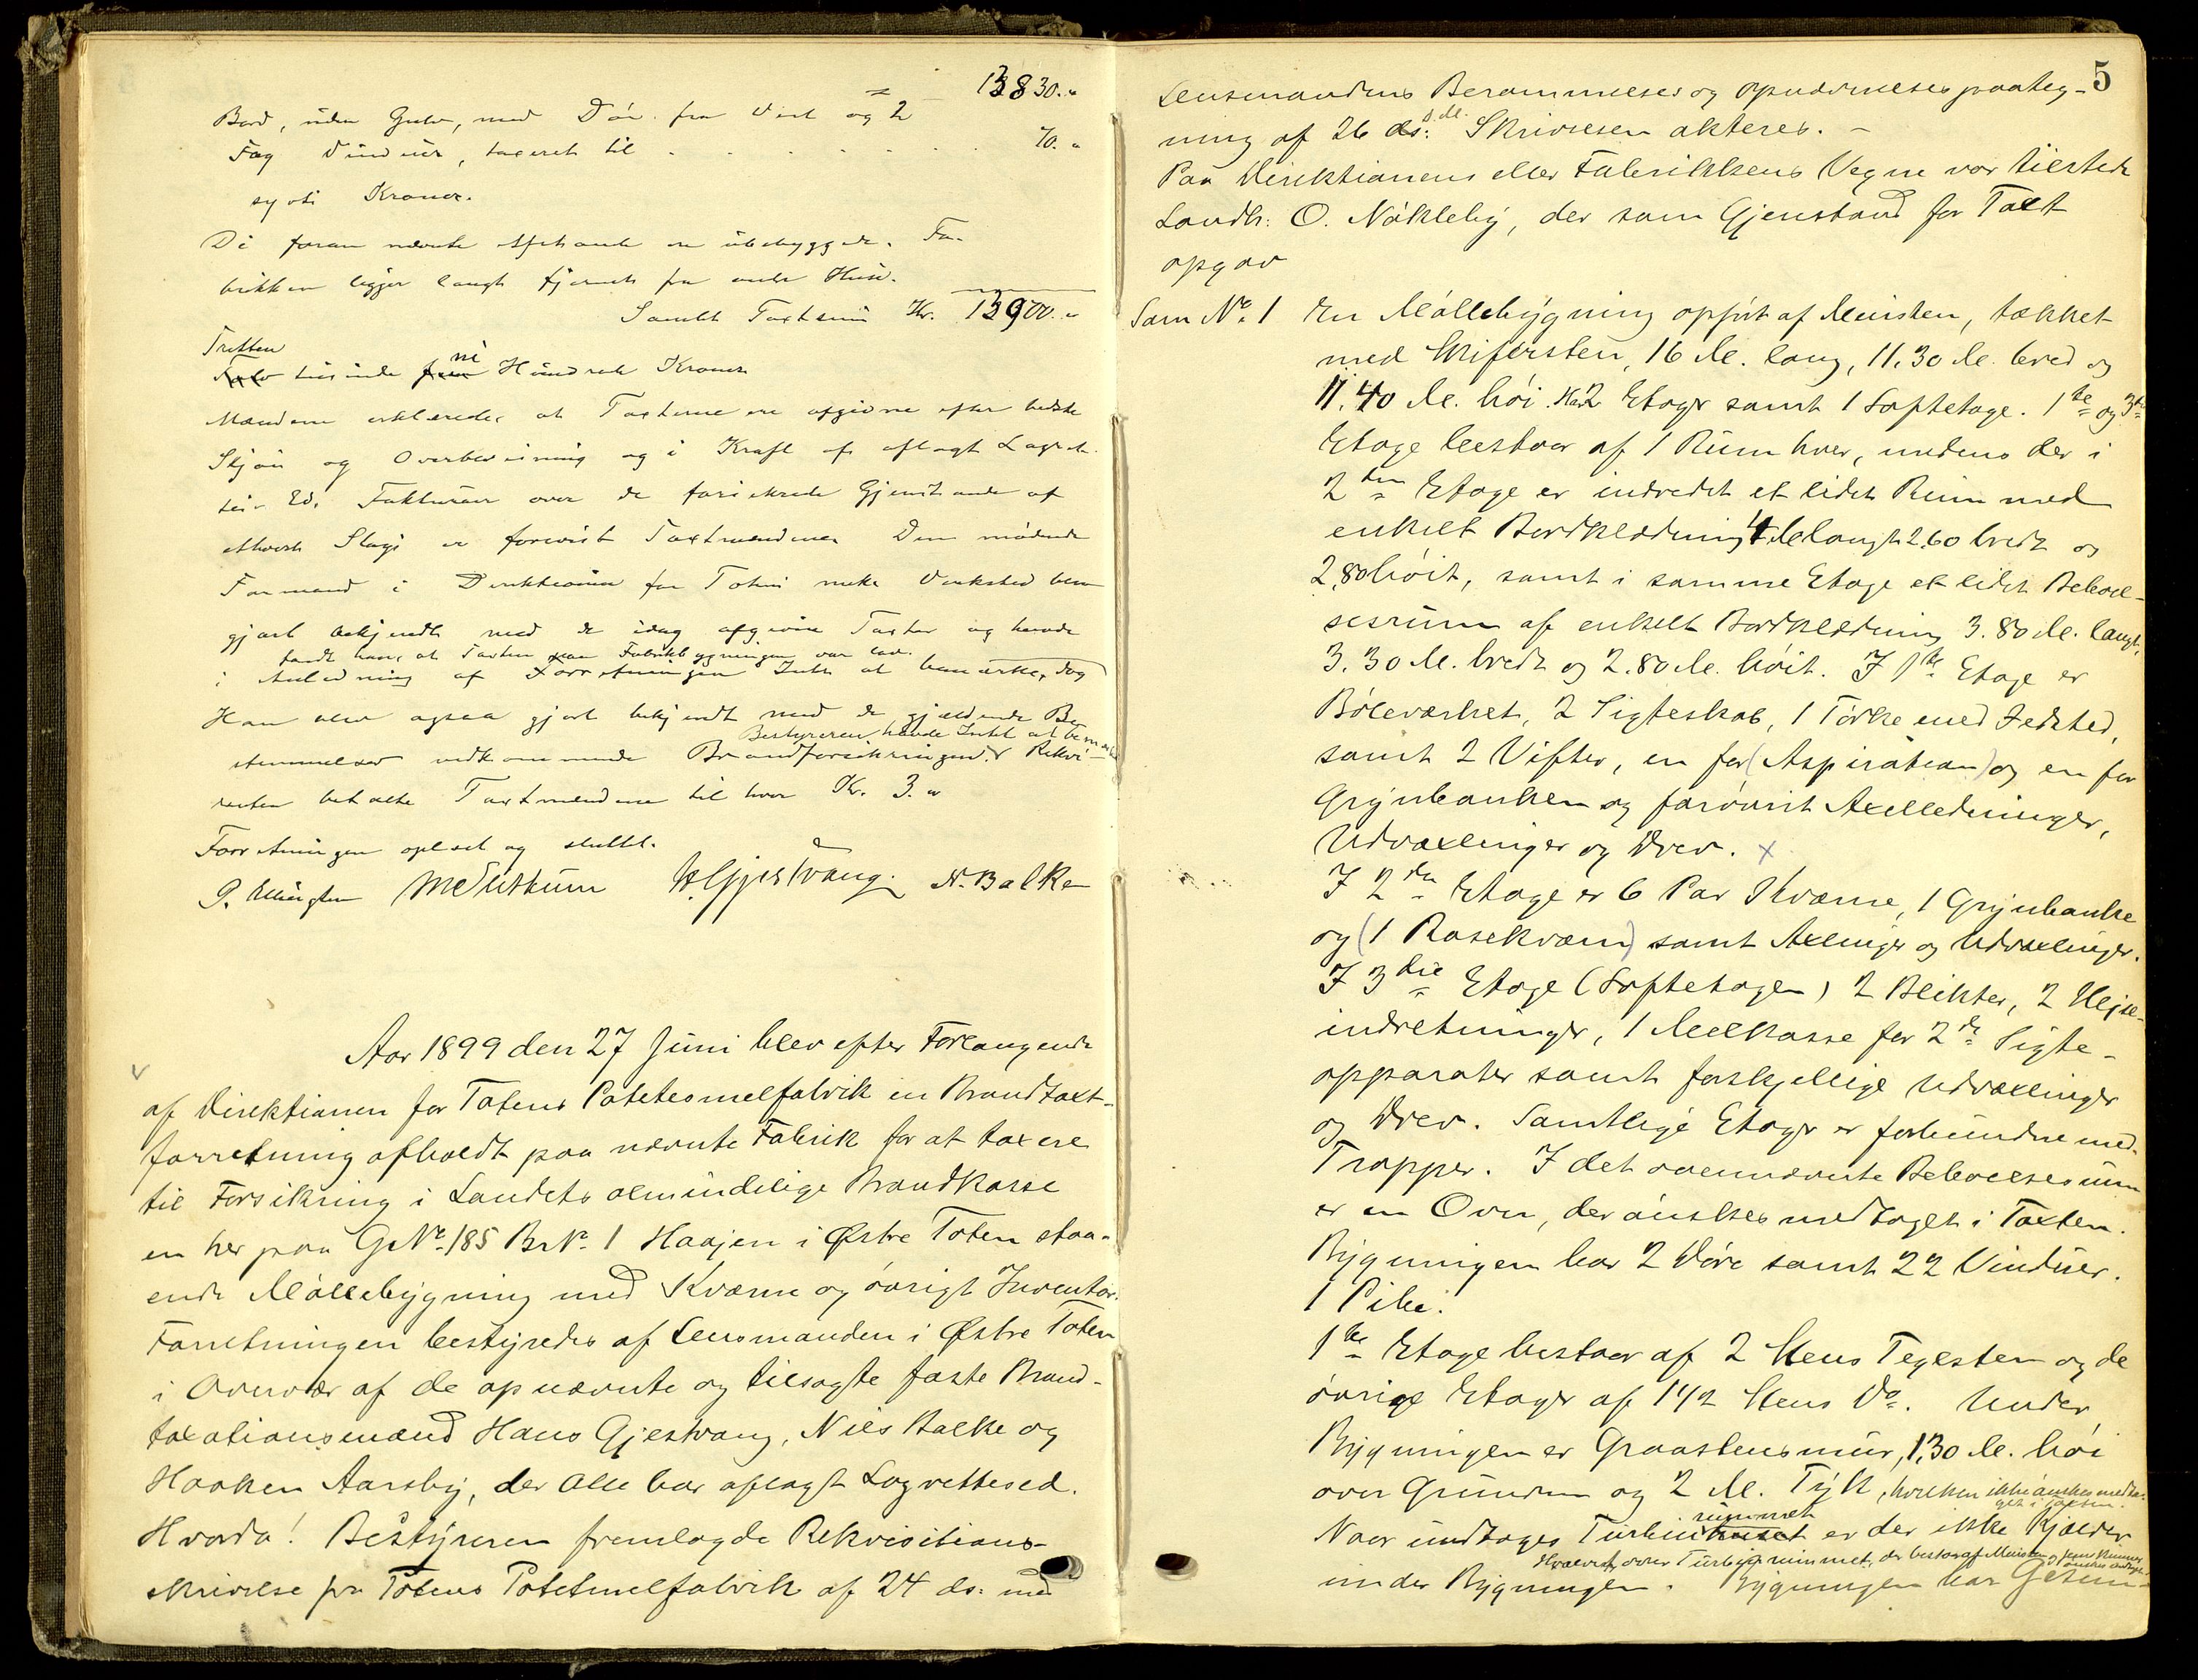 13830.„
Bord, uden Gulv, med Dör fra Vest og 2
Fag Vinduer, taxeret til . . . . . . . 70.„
sytti Kroner.
De foran nævnte er ubebyggede. Fa-
brikken ligger langt fjernet fra andre Huse.
Samlet Taxtsum Kr. 13900.„
Tretten
tusinde ni Hundrede Kroner
Mændene erklærede, at Taxterne ere afgivne efter bedste
Skjön og Overbevisning og i Kraft af aflagt Lagret-
tes Ed. Fakturaer over de forsikrede Gjenstande af
ethvert Slags er forevist Taxtmændene. Den mödende
Formand i Direktionen for Totens mek. Verksted blev
gjort bekjendt med de idag afgivne Taxter og havde
fandt han, at Taxten paa Fabrikbygningen var lav.
i Anledning af Forretningen Intet at bemærke, dog
Han blev ogsaa gjort bekjendt med de gjældende Be-
Bestyreren havde Intet at bemærke
stemmelser vedkommende Brandforsikringen. Rekvi-
renten betalte Taxtmændene til hver Kr. 3.„
Forretningen oplæst og sluttet.
H. Gjestvang. N. Balke
Aar 1899 den 27 Juni blev efter Forlangende
af Direktionen for Totens Potetesmelfabrik en Brandtaxt-
forretning afholdt paa nævnte Fabrik for at taxere
til Forsikring i Landets almindelige Brandkasse
en her paa G.No. 185 Br.No. 1 Haajen i Østre Toten staa-
ende Möllebygning med Kværne og övrigt Inventar.
Forretningen bestyredes af Lensmanden i Østre Toten
i Overvær af de opnævnte og tilsagte faste Brand-
taxationsmænd Hans Gjestvang, Nils Balke og
Haaken Aarsby, der Alle har aflagt Lagrettesed.
Hvorda! Bestyreren fremlagde Rekvisitions-
skrivelse fra Totens Potetmelfabrik af 24 ds: med
5
Lensmandens Berammelses og opnævnelsespaateg-
ning af 26 ds: s.M. Skrivelsen akteres. –
Paa Direktionens eller Fabrikkens Vegne var tilstede
Landh: O. Nökleby, der som Gjenstand for Taxt
opgav
Som No. 1 En Möllebygning opfört af Mursten, tækket
med Skifersten, 16 M. lang, 11.30 M. bred og
11.40 M. höi. Har 2 Etager samt 1 Loftetage. 1ste og 3die
Etage bestaar af 1 Rum hver, medens der i
2den Etage er indredet et lidet Rum med
enkelt Bordklædning 4 M langt 2.60 bredt og
2,80 höit, samt i samme Etage et lidet Beboel-
sesrum af enkelt Bordklædning 3.80 M. langt,
3.30 M. bredt og 2.80 M. höit. I 1ste Etage er
Böleværket, 2 Sigteskab, 1 Törke med Ildsted,
samt 2 Vifter, en for (Aspiration) og en for
Grynbanken og forövrit Axelledninger,
Udvexlinger og Drev. x
I 2den Etage er 6 Par Kværne, 1 Grynbanke
og (1 Rosekværn) samt Axlinger og Udvexlinger.
I 3die Etage (Loftetagen) 2 Blikter, 2 Hejse-
indretninger, 1 Melkasse for 2de Sigte-
apparater samt forskjellige Udvexlinger
og Drev. Samtlige Etager er forbundne med
Trapper. I det ovennævnte Beboelsesrum
er en Ovn, der önskes medtaget i Taxten.
Bygningen har 2 Döre samt 22 Vinduer.
1 Pibe.
1ste Etage bestaar af 2 Stens Teglsten og de
övrige Etager af 1 1/2 Stens Do. Under
Bygningen er Graastensmur, 1,30 M. höi
over Grunden og 2 M. Tyk, hvilken ikke önskes medta-
get i Taxten.
rummet
Naar undtages Turbinhuset er der ikke Kjælder
Hvælvet over Turbinrummet, der bestaar af Mursten og
under Bygningen. Bygningen har Gesim-